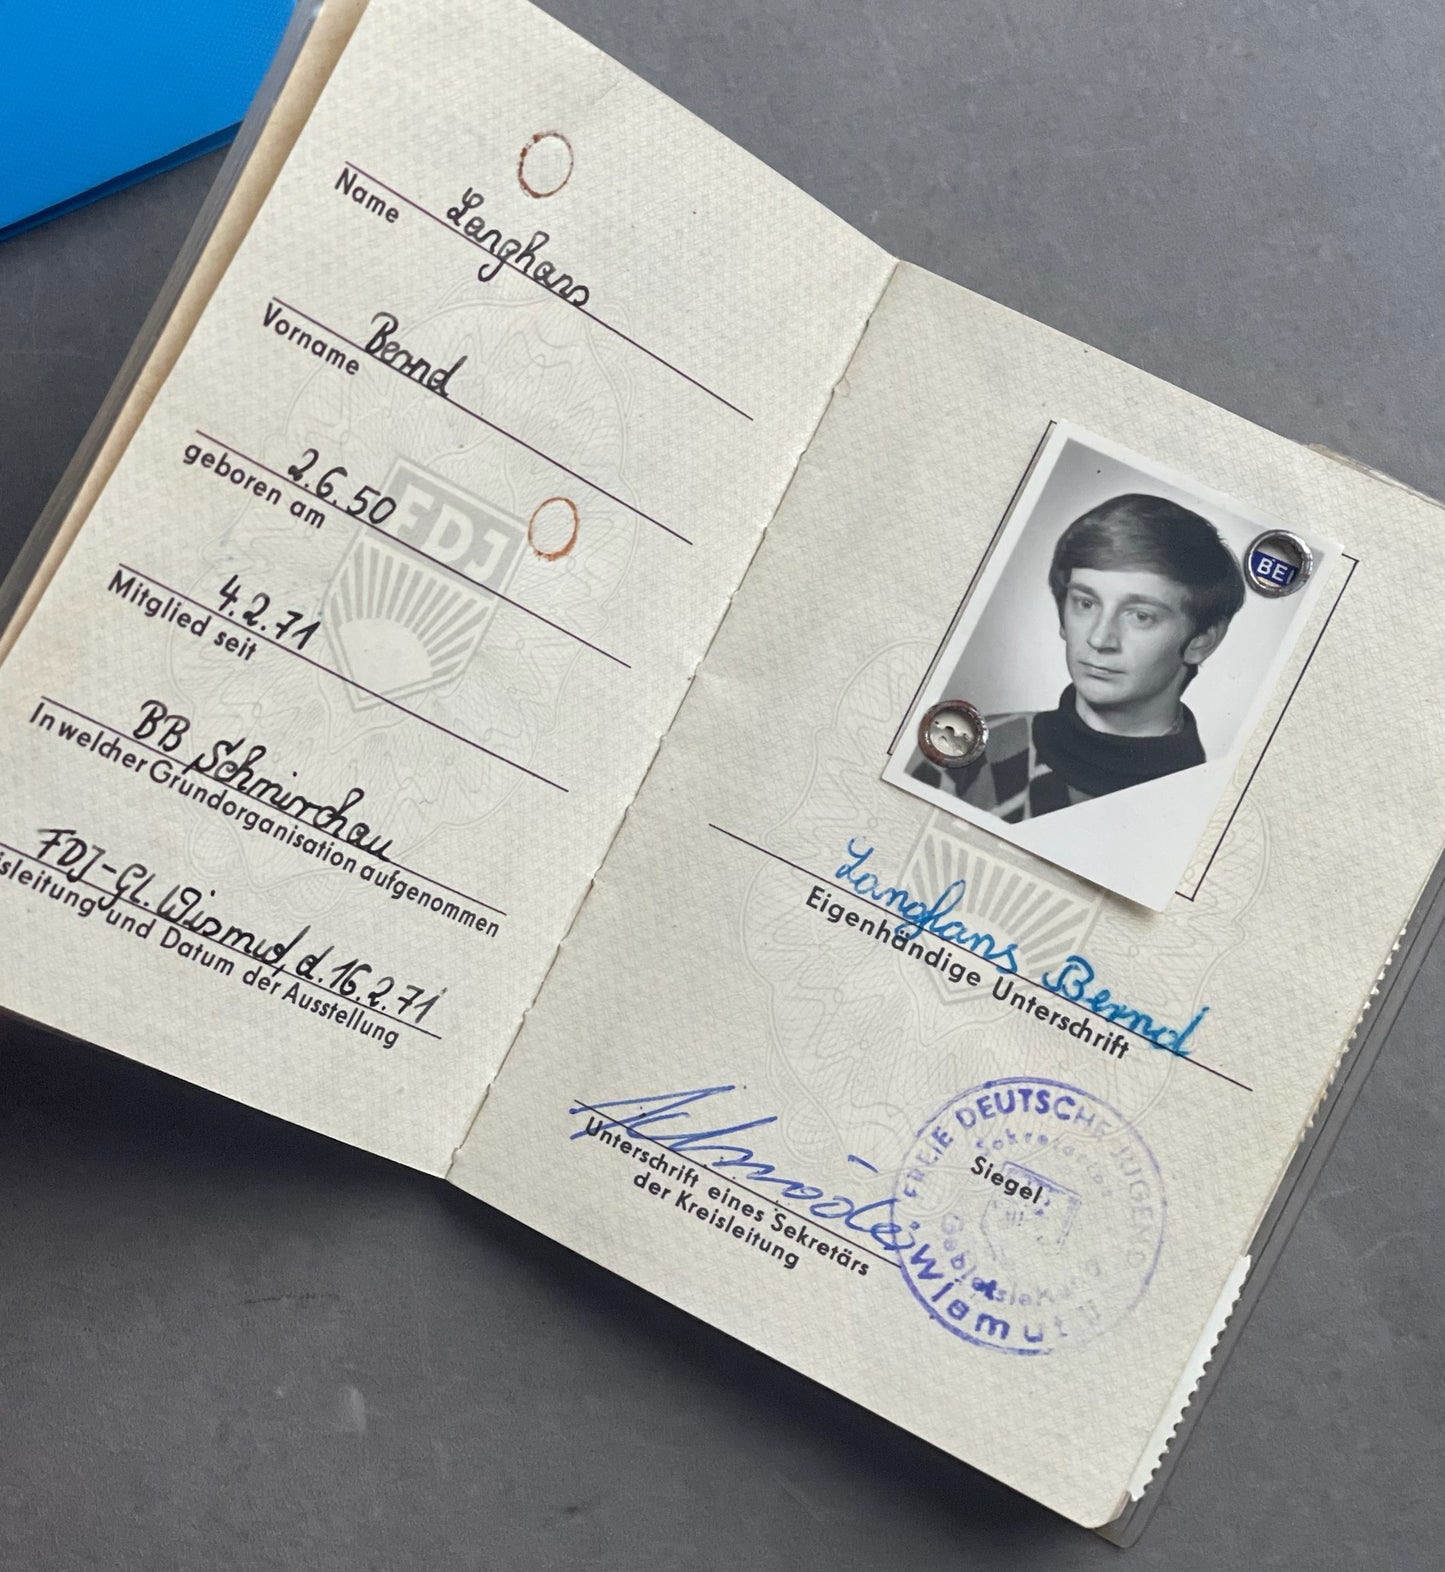 Langhans
Name
Bernd
Vorname
2.6.50
geboren am
FDJ
4.2.71
Mitglied seit
BB Schmirchau
In welcher Grundorganisation aufgenommen
FDJ-GL. Wismut, d. 16.2.71
isleitung und Datum der Ausstellung
BEI
Langhans Bernd
Eigenhändige Unterschrift
Unterschrift eines Sekretärs
der Kreisleitung
Siegel
FREIE DEUTSCHE JUGEND
Wismut